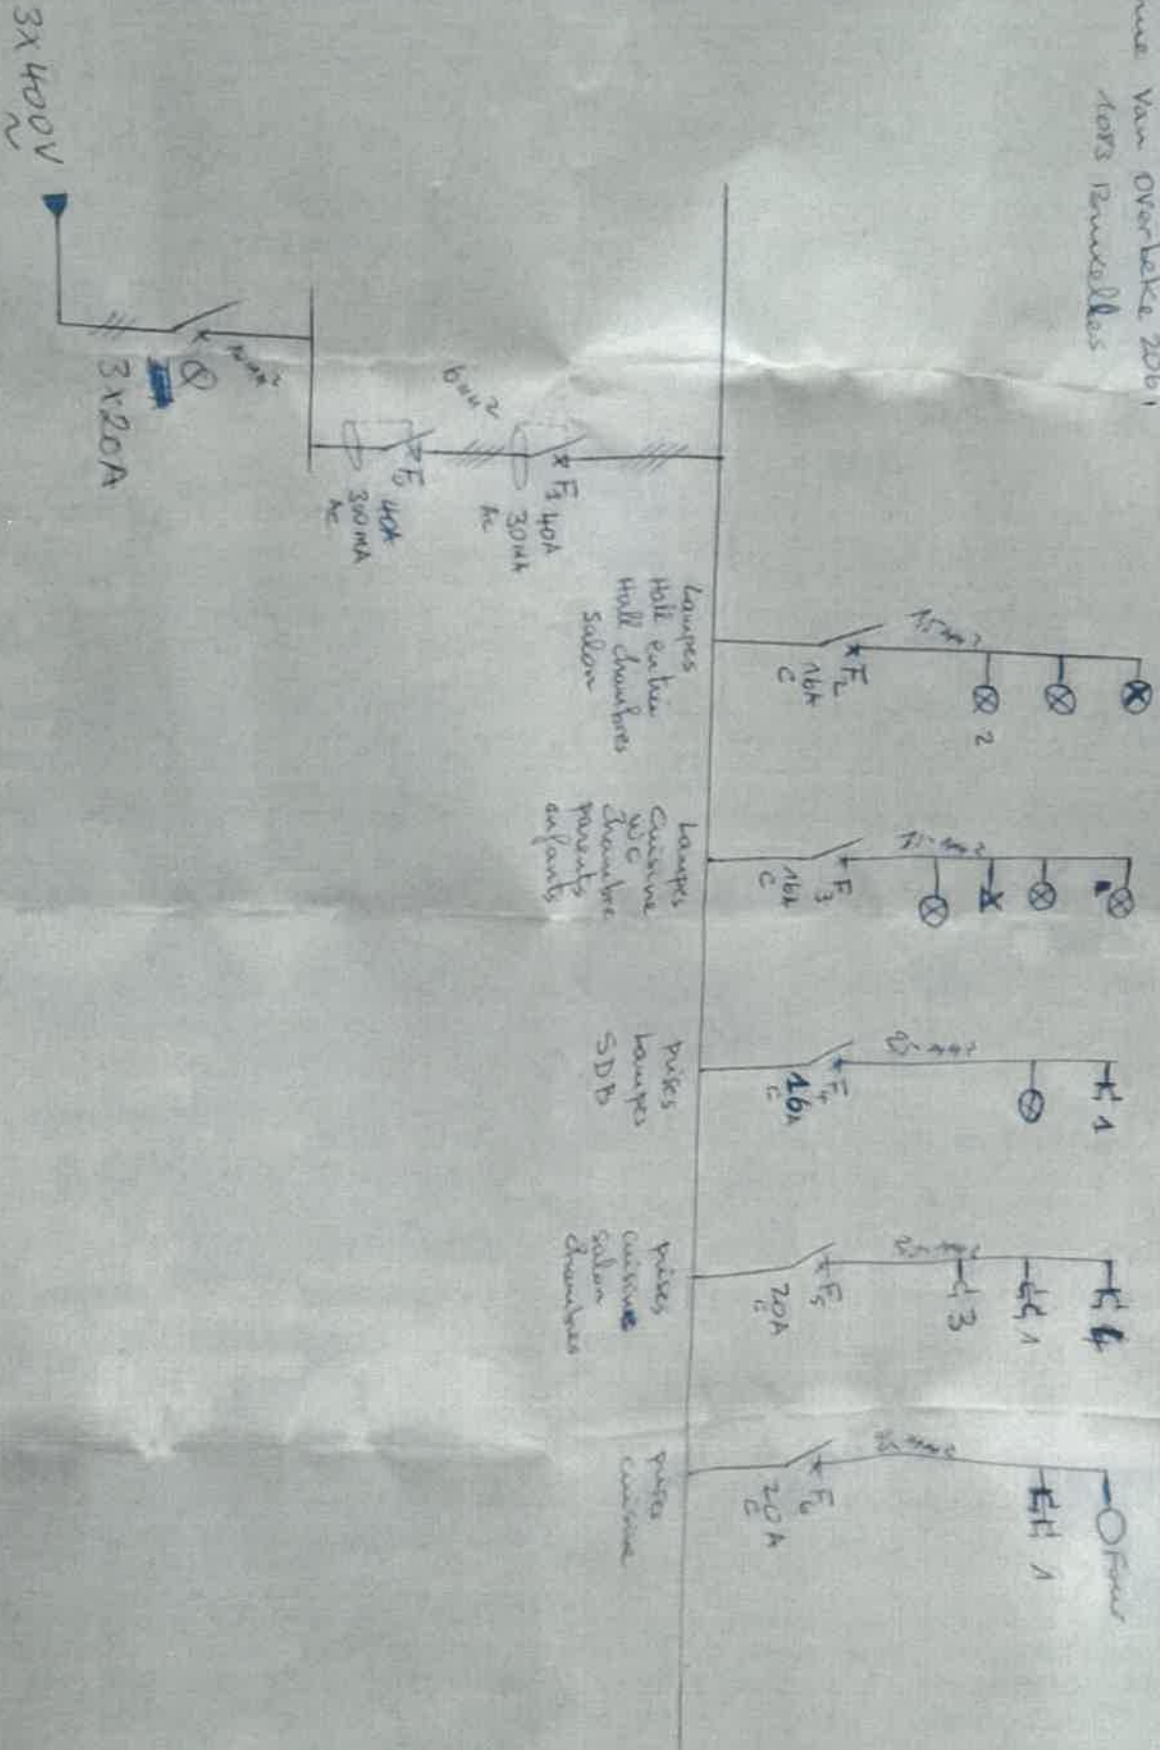 Van Overbeke 206,
1083 Bruxelles
3X400V
~
3x20A
Q
6mm²
F0
40A
300mA
AC
F1 40A
30mA
AC
Lampes
Hall entrée
Hall chambres
Salon
F2
16A
C
2
Lampes
Cuisine
WC
Chambre
parents
enfants
F3
16A
C
prises
Lampes
SDB
F4
16A
C
1
prises
cuisine
salon
chambres
F5
20A
C
3
1
4
prises
cuisine
F6
20A
C
1
Four